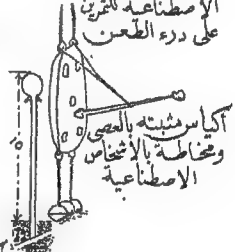 الاصطناعية للتمرين
على درء الطعن
أكياس مثبتة بالعصي
ومخاطة بالأشخاص
الاصطناعية